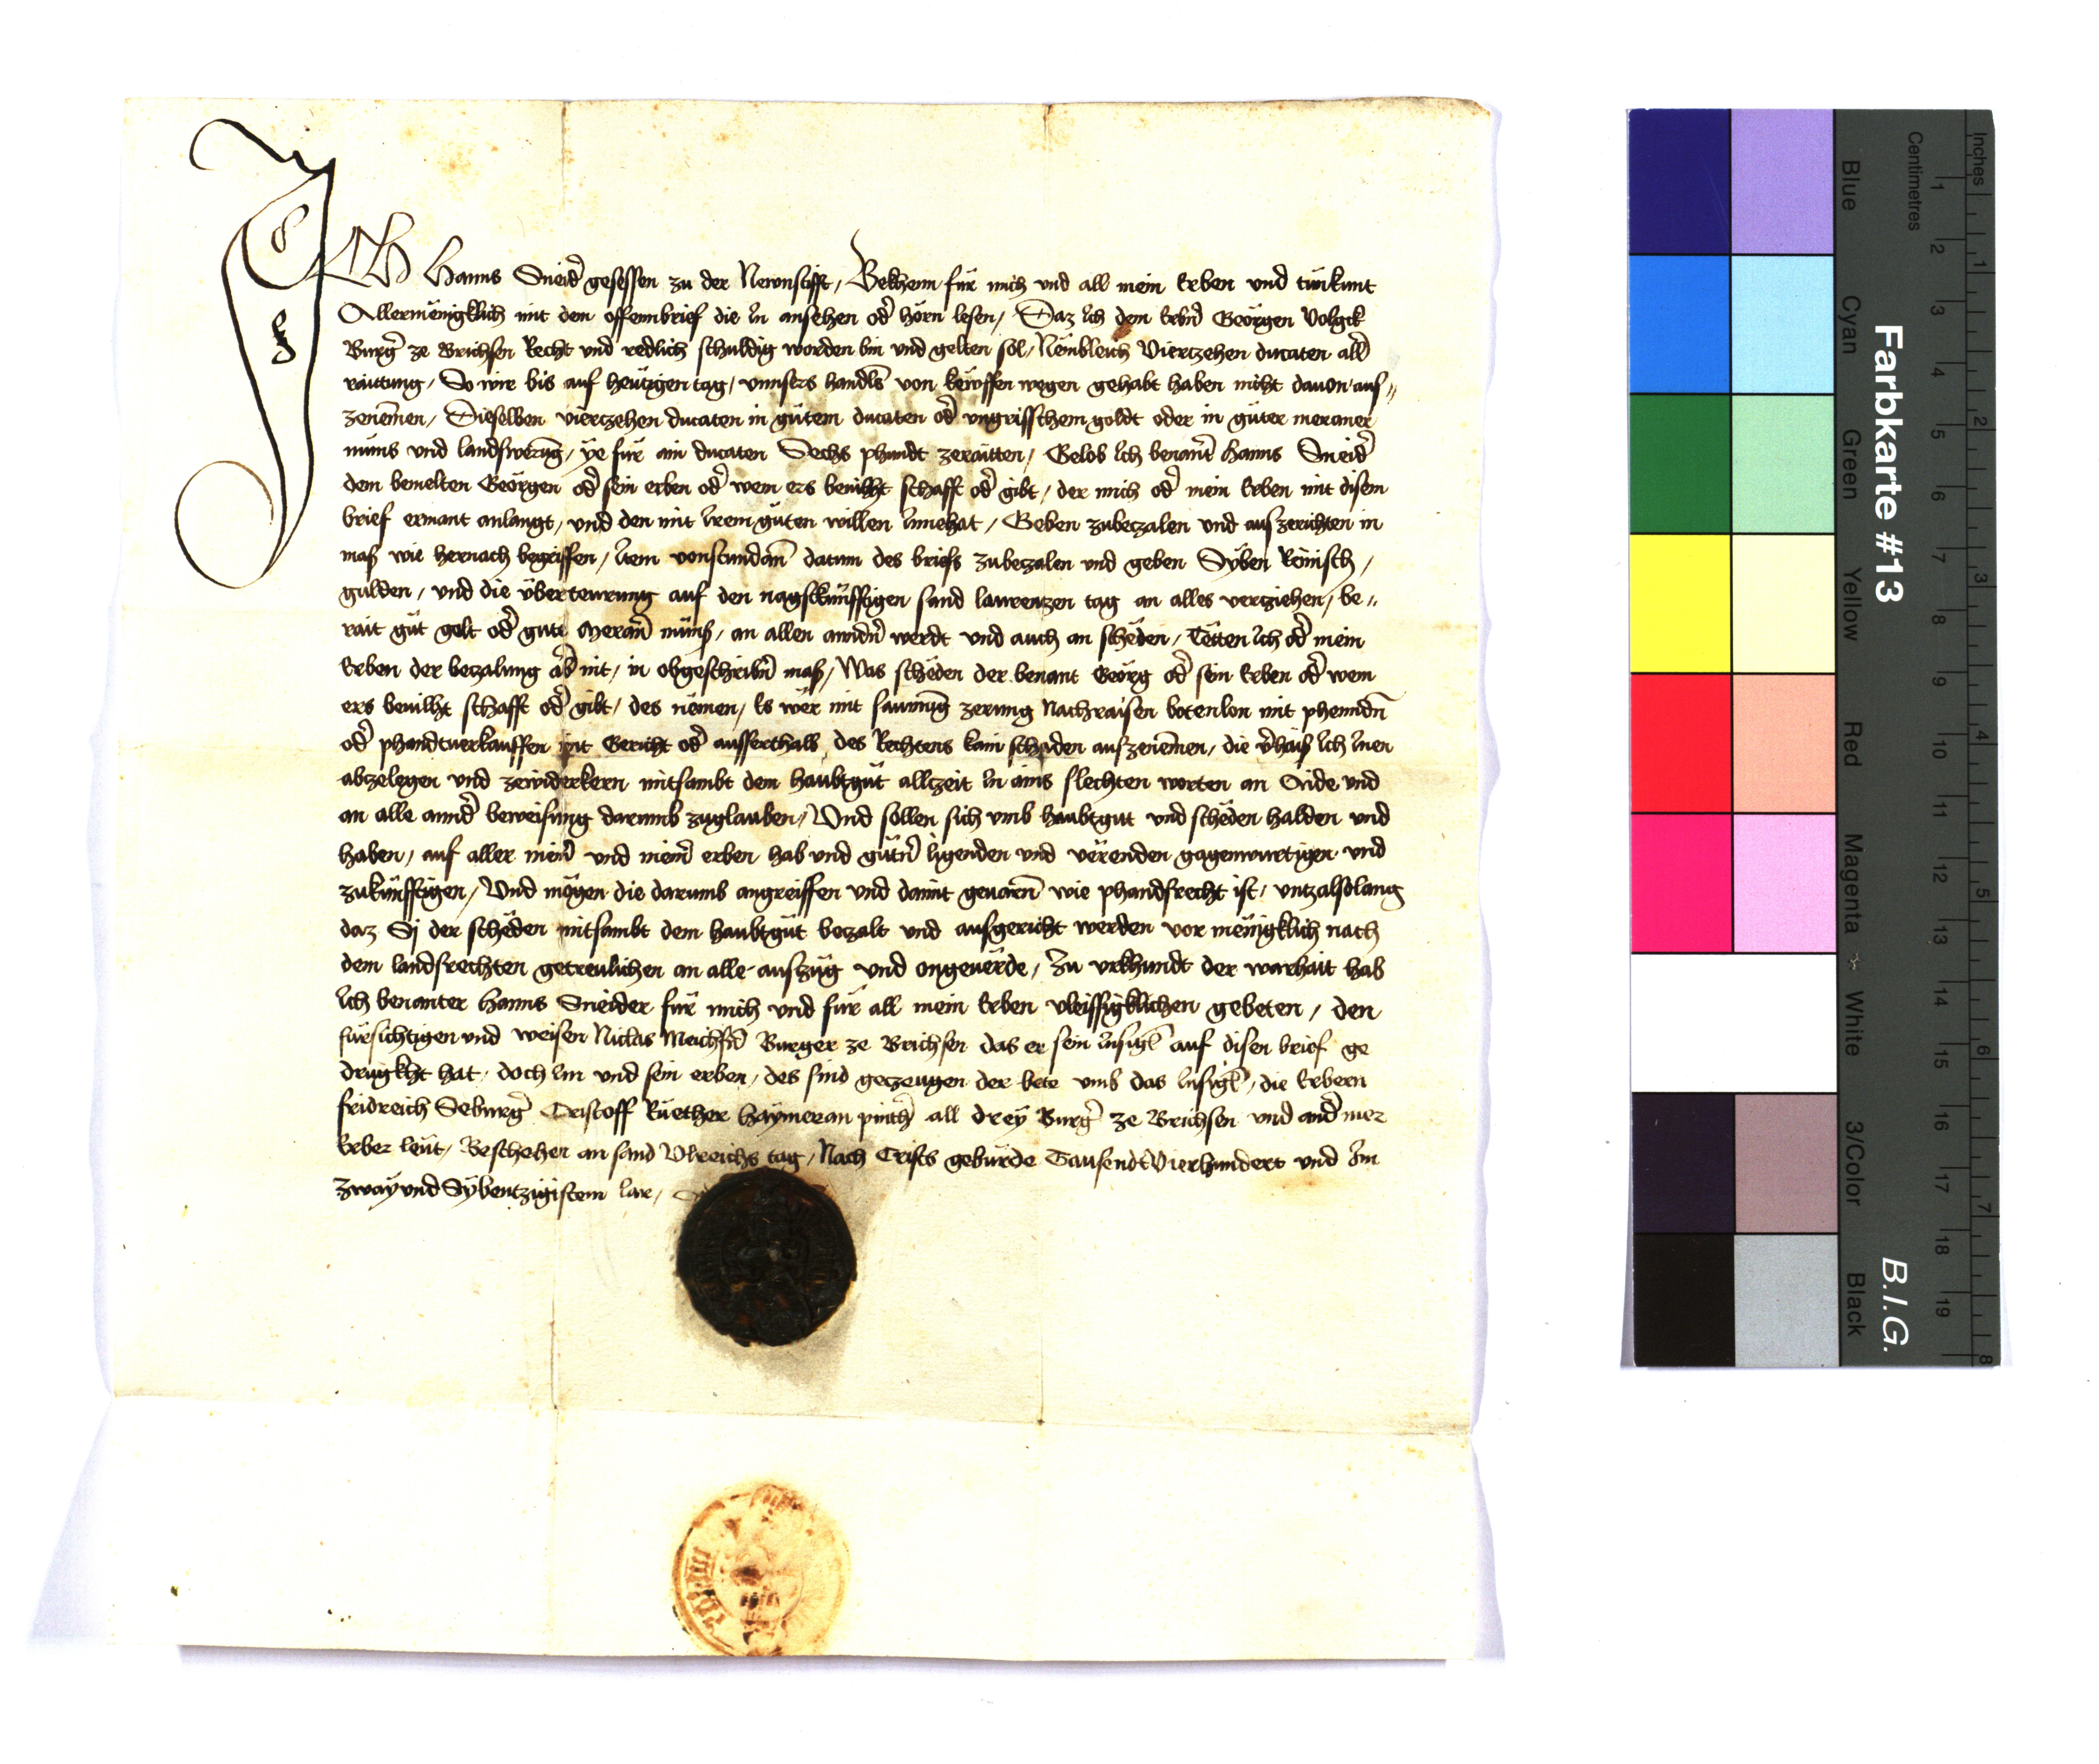 ICH Hanns Sneid̄ gesessen zu der Newnstifft, Bekhenn für mich vnd all mein Erben vnd tün kunt
Allermënigklich mit dem offennbrief die In ansehen od̄ hörn lesen, Daz Ich dem Erbn̄ Geörgen Volgck
Burḡ ze Brichsen Recht vnd redlich schuldig worden bin vnd gelten sol, Nëmbleich Viertzehen ducaten all̄
raittung, So wir bis auf heütigen tag, vnnsers handls von kewffen wegen gehabt haben nicht dauon aus〃
zenem̄en, Dieselben viertzehen ducaten in gütem ducaten od̄ vngrisschem goldt oder in güter meraner
münss vnd landswerūg, ye für ain ducaten Sechs phundt zeraitten, Gelob Ich benant̄ Hanns Sneid̄
dem bemelten Geörgen od̄ sein erben od̄ wem ers beuilht schafft od̄ gibt, der mich od̄ mein Erben mit disem
brief ermant anlangt, vnd den mit Irem güten willen Innehat, Geben zubeczalen vnd auszerichten in
mass wie hernach begriffen, Item vonstundan̄ datum des briefs zubeczalen vnd geben Syben Reinisch,
gulden, vnd die überteurung auf den nagstkünfftigen sand laurenzen tag an alles verziehen, be〃
rait güt golt od̄ gute Meran̄ münss, an allen anndn̄ werdt vnd auch an schëden, Tëtten Ich od̄ mein
Erben der beczalung ab̄ nit, in obgeschribn̄ mass, Was schëden der benant Geörg od̄ sein Erben od̄ wem
ers beuilht schafft od̄ gibt, des nëmen, Es wër mit sawmūg zerung Nachraisen botenlon mit phenndn̄
od̄ phandtuerkauffen mit Gericht od̄ ausserthalb des Rechtens kain schaden auszenem̄en, die v̄haiss Ich Inen
abzelegen vnd zewiderkern mitsambt dem haubtgüt allczeit In ains slechten worten an Aide vnd
an alle annd̄ beweisung darumb zuglauben, Vnd sollen sich vmb haubtgut vnd schëden halden vnd
haben, auf aller mein̄ vnd mein̄ erben hab vnd gütn̄ ligenden vnd vërenden gagenwurtigen vnd
zukünfftigen, Vnd mögen die darumb angreiffen vnd damit geuarn̄ wie phandsrecht ist, vntzalslolang
daz Sj der schëden mitsambt dem haubtgüt beczalt vnd ausgericht werden vor mënigklich nach
dem landsrechten getreulichen an alle auszüg vnd ongeuërde, Zu vrkhundt der warhait hab
Ich benanter Hanns Sneider für mich vnd für all mein Erben vleissigklichen gebeten, den
fürsichtigen vnd weisen Niclas Burger ze Brichsen das er sein Insigl̄ auf disen brief ge
drugkht hat, doch Im vnd sein erben, des sind geczeugen der bete vmb das Insigl̄, die Erbern
fridreich Seburḡ Cristoff Rüether Haymeran pinth̄ all drey Burḡ ze Brichsen vnd and̄ mer
Erber leüt, Beschehen an sand Vlreichs tag, Nach Crists gebürde Tausendt Vierhundert vnd Im
zway vnd Sybentzigistem Iare,
Farbkarte #13
B.I.G.
Blue
Cyan
Green
Yellow
Red
Magenta
White
3/Color
Black
Centimetres
1 2 3 4 5 6 7 8 9 10 11 12 13 14 15 16 17 18 19
Inches
1 2 3 4 5 6 7 8